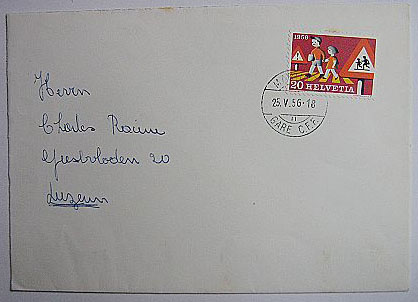 1956
20 HELVETIA
25.V.56-18
11
GARE C.F.F.
Herrn
Charles
20
Luzern